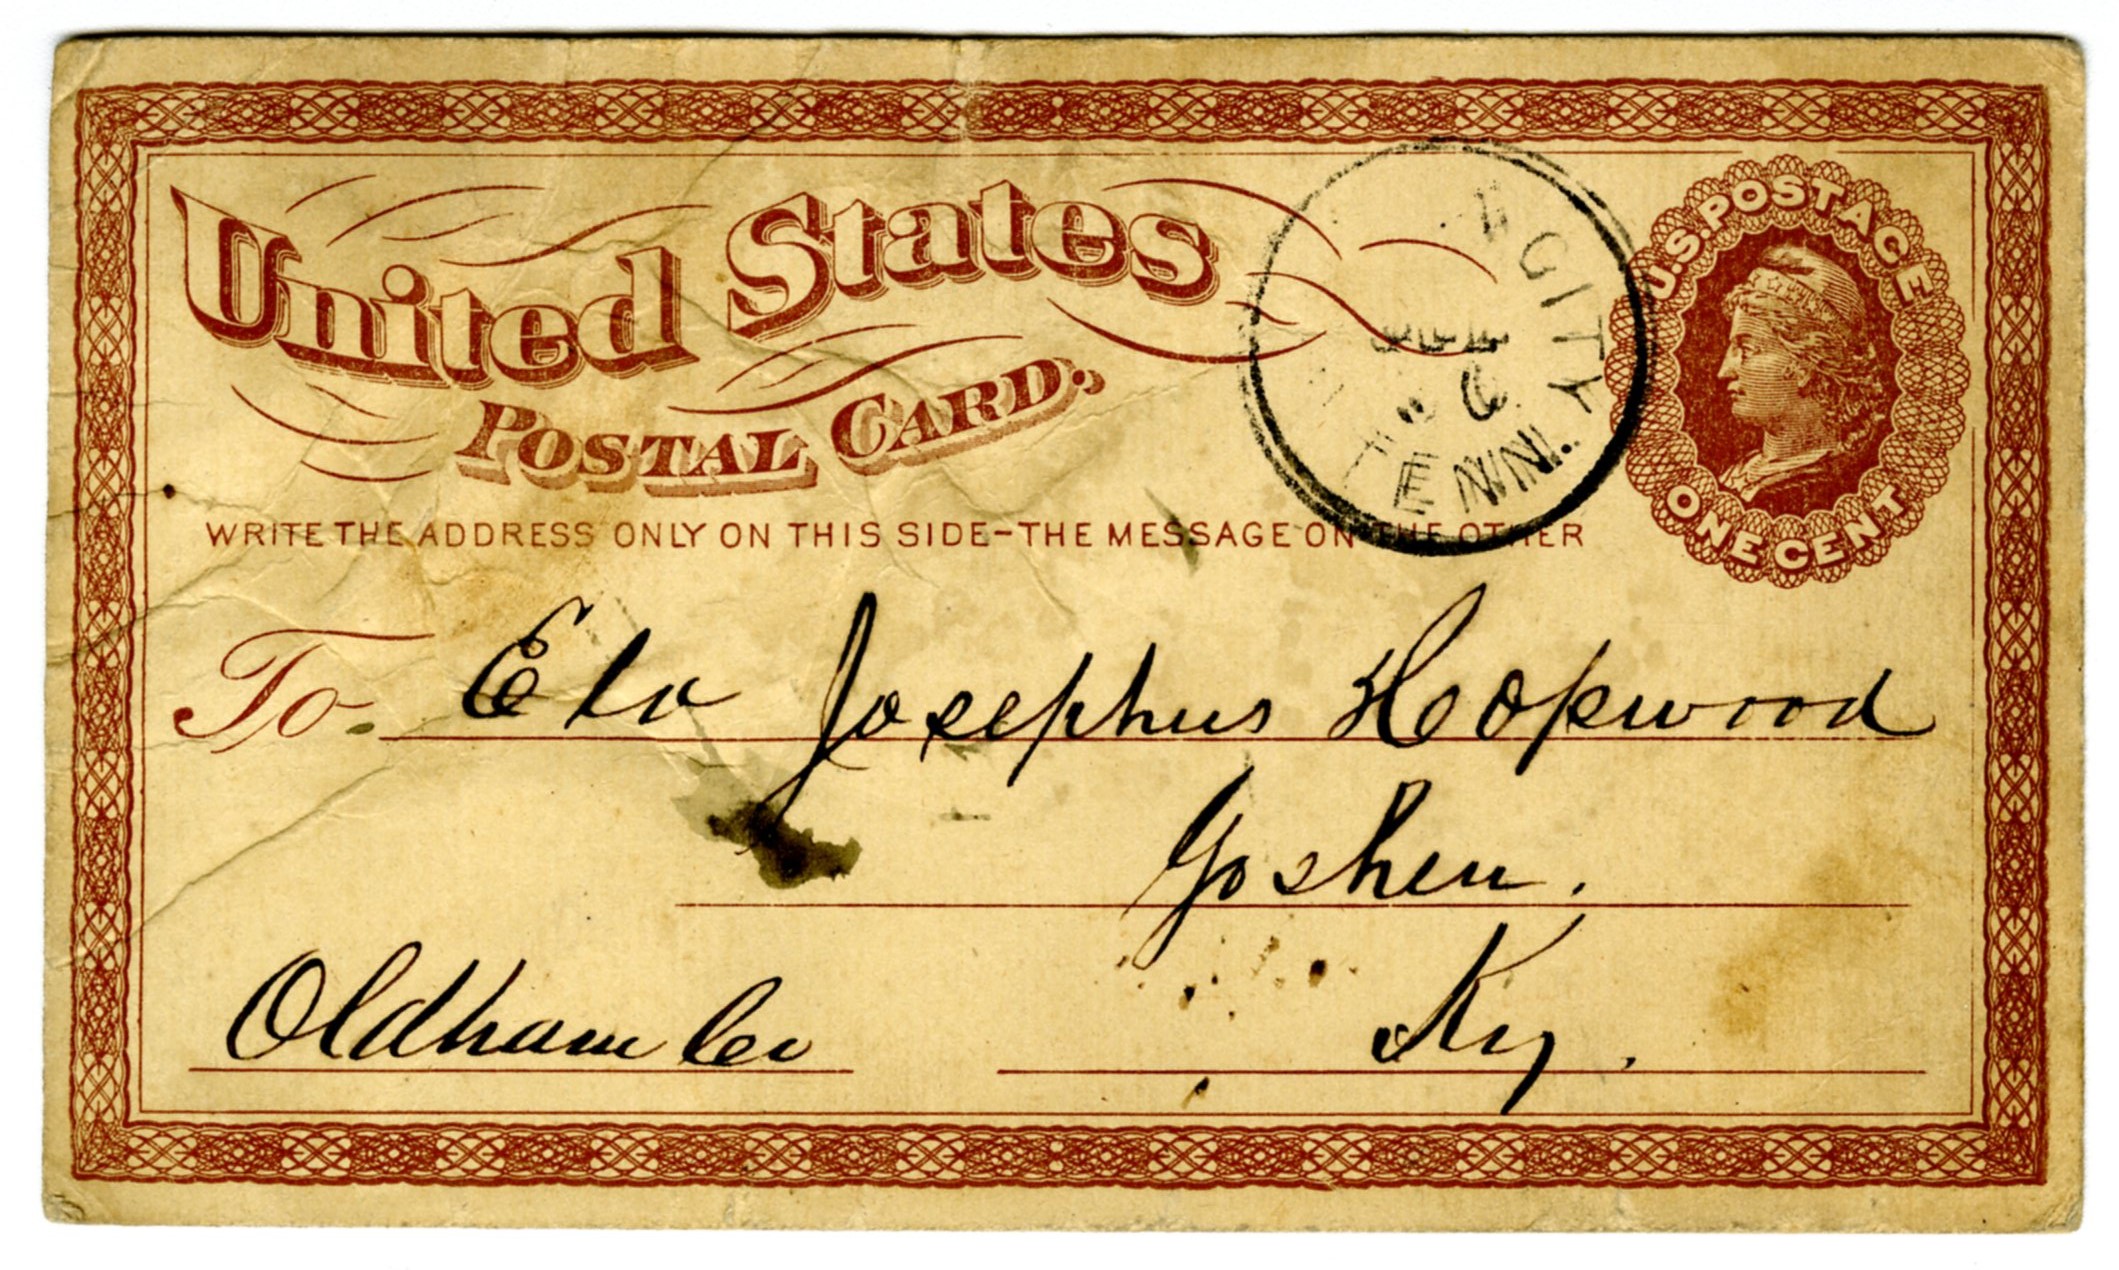 United States
POSTAL CARD.
U.S. POSTAGE
ONE CENT
CITY
TENN.
WRITE THE ADDRESS ONLY ON THIS SIDE-THE MESSAGE ON THE OTHER
To Eld Josephus Hopwood
Goshen.
Oldham Co Ky.